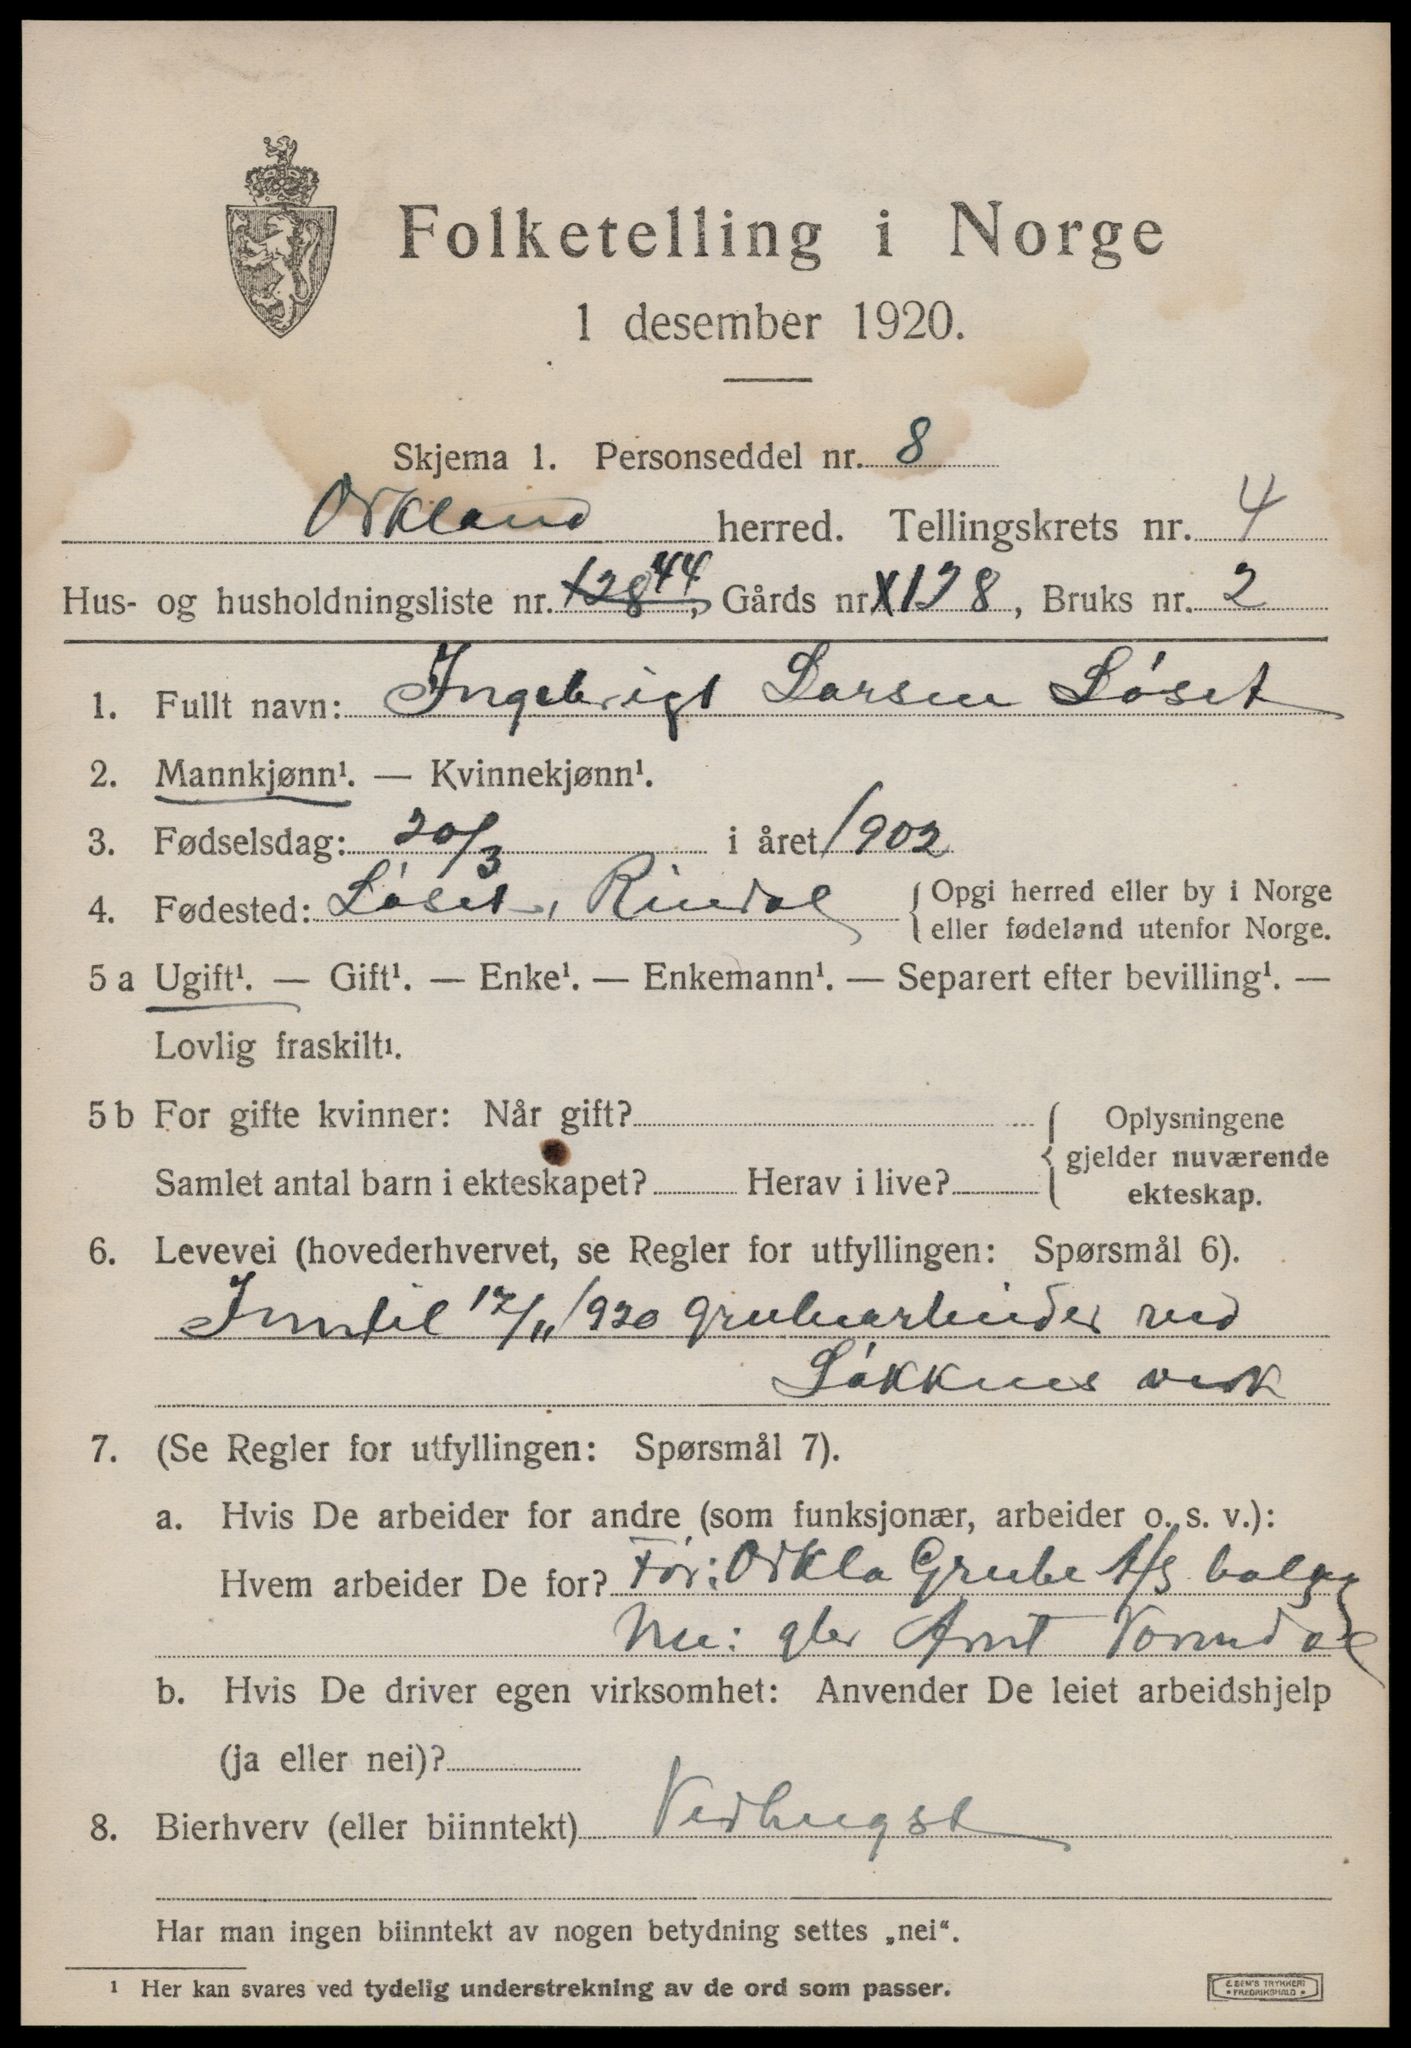 Folketelling i Norge
1 desember 1920.
Skjema 1. Personseddel nr. 8
Orkland herred. Tellingskrets nr. 4
Hus- og husholdningsliste nr. 128 44, Gårds nr. X128, Bruks nr. 2
1. Fullt navn: Ingebrigt Larsen Løset
2. Mannkjønn¹. — Kvinnekjønn¹.
3. Fødselsdag: 20/3 i året 1902
4. Fødested: Løset, Rindal { Opgi herred eller by i Norge
eller fødeland utenfor Norge.
5 a Ugift¹. — Gift¹. — Enke¹. — Enkemann¹. — Separert efter bevilling¹. —
Lovlig fraskilt¹.
5 b For gifte kvinner: Når gift? { Oplysningene
gjelder nuværende
Samlet antal barn i ekteskapet? Herav i live? ekteskap.
6. Levevei (hovederhvervet, se Regler for utfyllingen: Spørsmål 6).
Inntil 17/11 1920 grubearbeider ved
Løkkens verk
7. (Se Regler for utfyllingen: Spørsmål 7).
a. Hvis De arbeider for andre (som funksjonær, arbeider o. s. v.):
Hvem arbeider De for? Før: Orkla Grube A/S
Nu: Arnt Vormdal
b. Hvis De driver egen virksomhet: Anvender De leiet arbeidshjelp
(ja eller nei)?
8. Bierhverv (eller biinntekt) Vedhugst
Har man ingen biinntekt av nogen betydning settes „nei“.
¹ Her kan svares ved tydelig understrekning av de ord som passer.
E. SEM'S TRYKKERI
FREDRIKSHALD